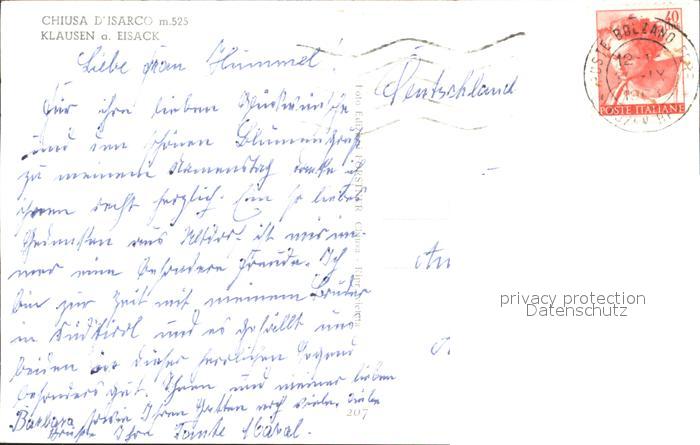 CHIUSA D'ISARCO m.525
KLAUSEN a. EISACK
Liebe Frau Hummel!
Deutschland
Für Ihre lieben Glückwünsche
und den schönen Blumengruß
zu meinem Namenstag danke ich
Ihnen recht herzlich. Ein so liebes
Gedenken aus Altdorf ist mir im-
mer eine besondere Freude. Ich
bin zur Zeit mit meinem Bruder
in Südtirol und es gefällt uns
beiden in dieser herrlichen Gegend
besonders gut. Ihnen und meiner lieben
Barbara sowie Ihrem Gatten noch viele liebe
Grüße Ihre Tante
Foto Edizioni
207
An
40
POSTE BOLZANO
POSTE ITALIANE
privacy protection
Datenschutz